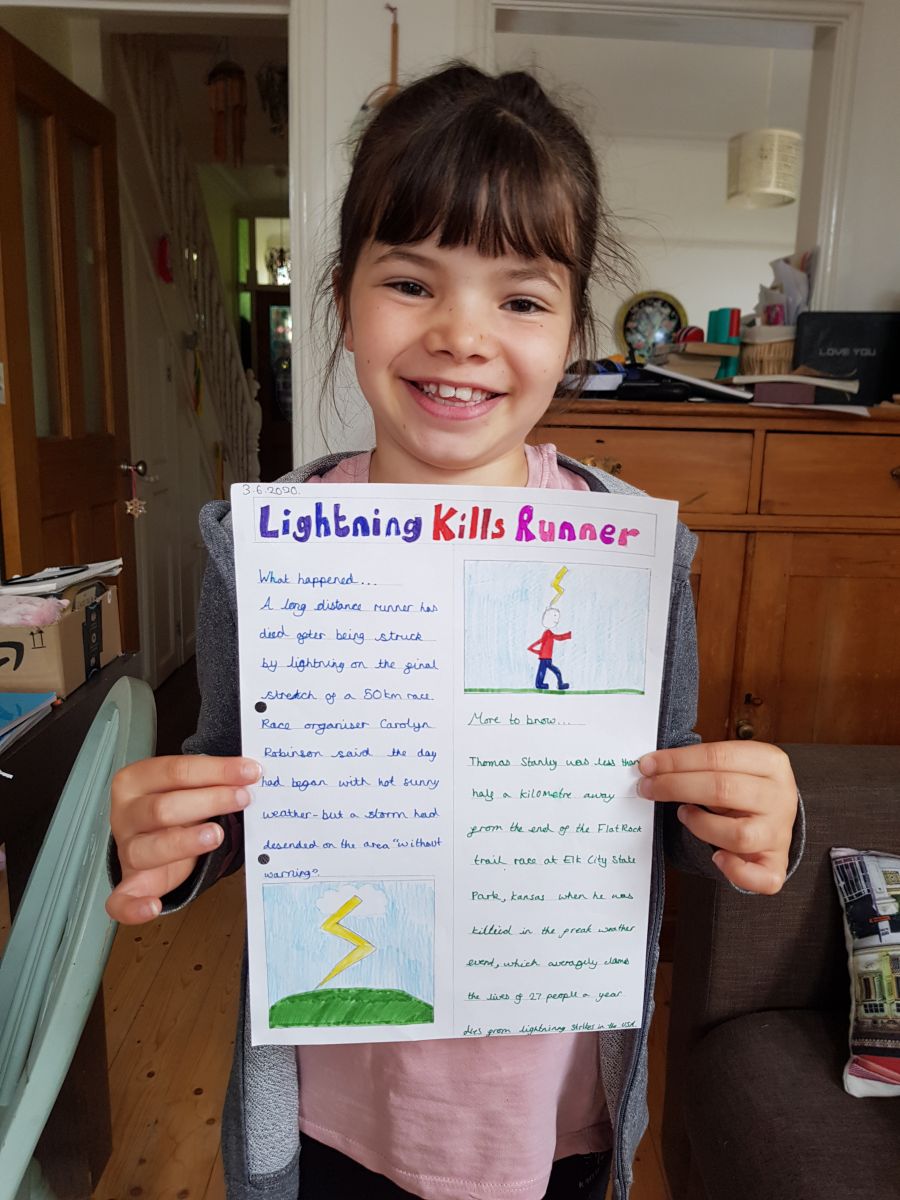 3.6.2020.
Lightning Kills Runner
What happened...
A long distance runner has
died after being struck
by lightning on the final
stretch of a 50km race.
Race organiser Carolyn
Robinson said the day
had began with hot sunny
weather-but a storm had
desended on the area "without
warning".
More to know....
Thomas Stanly was less than
half a kilometre away
from the end of the FlatRock
trail race at Elk City State
Park, Kansas when he was
killeid in the freak weather
event, which averagely clams
the lives of 27 people a year
dies from lightning strikes in the USA.
LOVE YOU